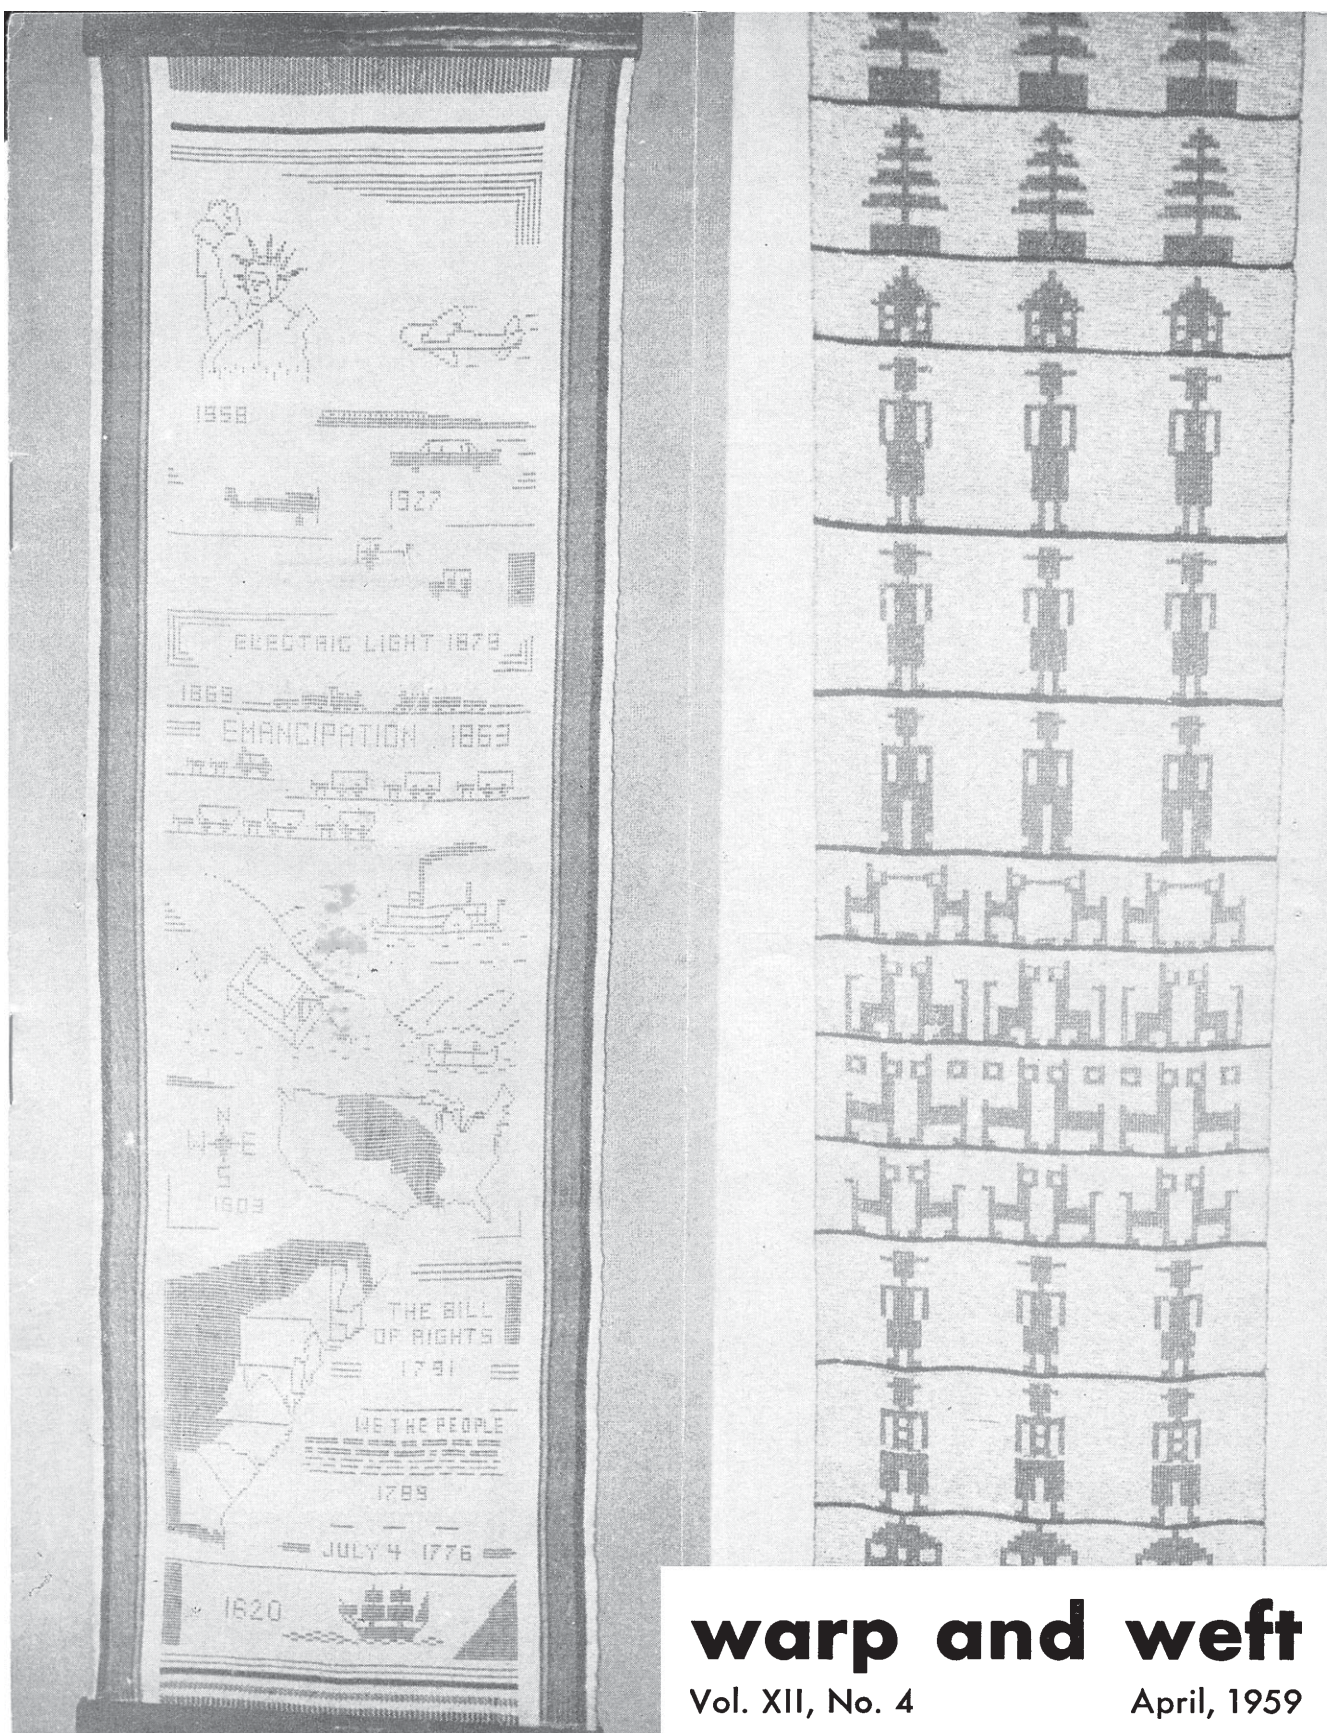 1958
1927
ELECTRIC LIGHT 1879
1869
EMANCIPATION 1863
N
W E
S
1803
THE BILL
OF RIGHTS
1791
WE THE PEOPLE
1789
JULY 4 1776
1620
warp and weft
Vol. XII, No. 4 April, 1959